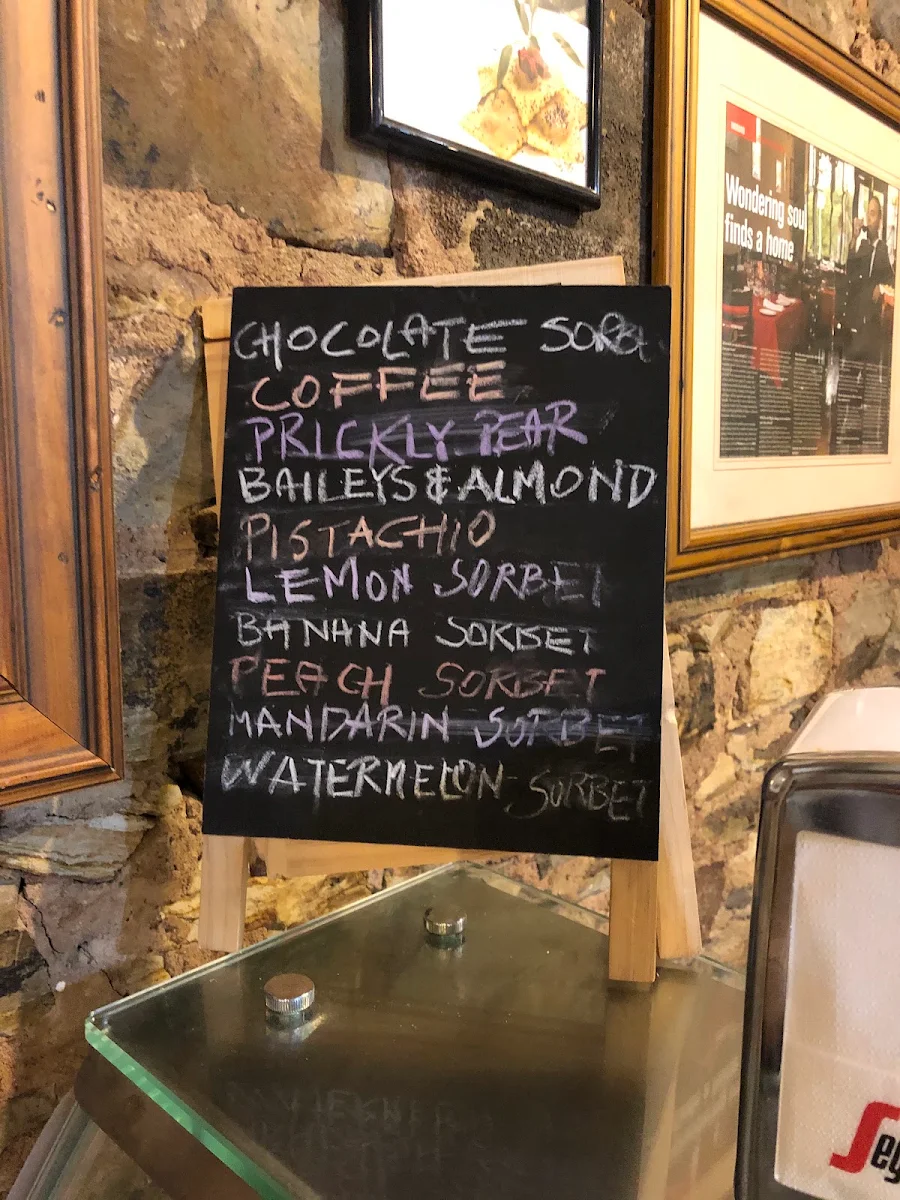 CHOCOLATE SORBE
COFFEE
PRICKLY PEAR
BAILEYS & ALMOND
PISTACHIO
LEMON SORBET
BANANA SORBET
PEACH SORBET
MANDARIN SORBET
WATERMELON SORBET
Wondering soul
finds a home
Seg